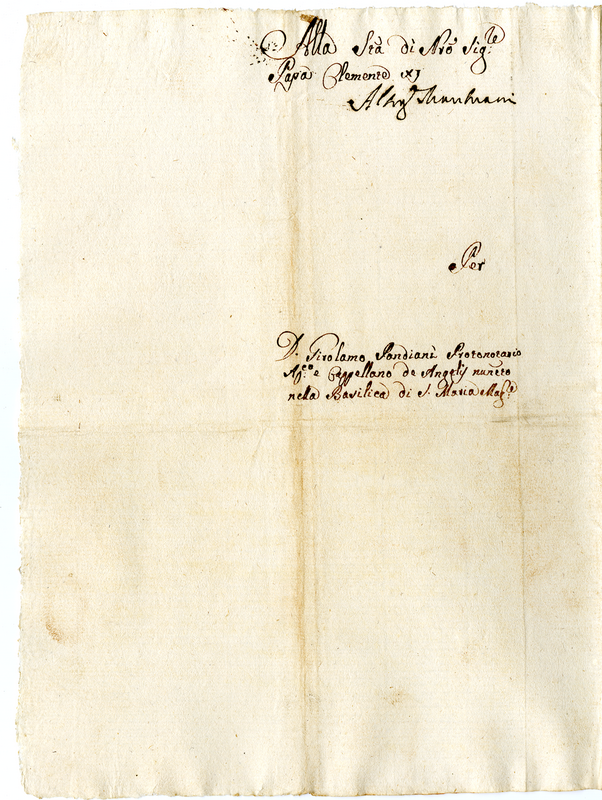 Alla Stà di Nrõ Sig.re
Papa Clemente XJ
Per
D. Girolamo Pandiani Protonotario
Ap.co e Cappellano de Angelis nuncto
nella Basilica di S. Maria Mag.re